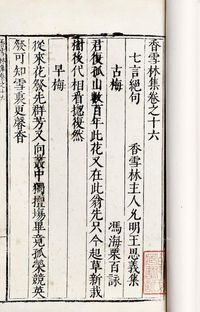 香雪林集卷之十六
七言絕句 香雪林主人允明王思義集
古梅 馮海粟百詠
君復孤山數百年此花又在此翁先只今起草新栽
樹後代相看復然
早梅
從來花發先群芳又向叢中獨擅場畢竟孤英
發可知雪裏更馨香